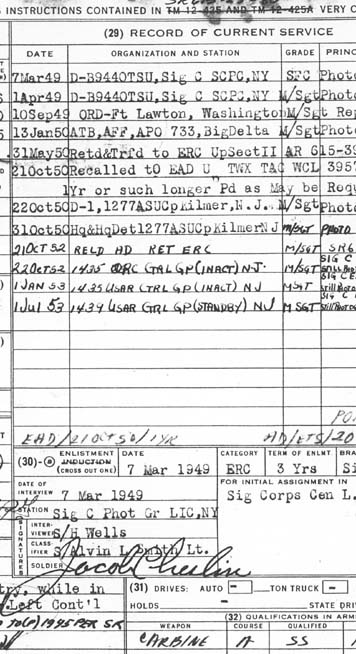 INSTRUCTIONS CONTAINED IN TM 12-425 AND TM 12-425A VERY C
(29) RECORD OF CURRENT SERVICE
DATE ORGANIZATION AND STATION GRADE PRINC
7Mar49 D-B9440TSU,Sig C SCPC,NY SFC Photo
1Apr49 D-B9440TSU,Sig C SCPC,NY M/Sgt Photo
10Sep49 ORD-Ft Lawton, Washington M/Sgt Rep
13Jan50 ATB,AFF,APO 733,BigDelta M/Sgt Photo
31May50 Retd&Trfd to ERC UpSectII AR 615-39
21Oct50 Recalled tO EAD U TWX TAG WCL 3957
1Yr or such longer Pd as May be Requ
22Oct50 D-1,1277ASUCpKilmer,N.J. M/Sgt Photo
31Oct50 Hq&HqDet1277ASUCpKilmerNJ M/SGT PHOTO
21Oct52 RELD AD RET ERC M/SGT
22Oct52 1435 ORC CTRL GP (INACT) N.J. M/SGT SIG C
1 JAN 53 1435 USAR CTRL GP (INACT) NJ MSGT Still PHOTO
1Jul 53 1434 USAR CTRL GP (STANDBY) NJ M SGT Still Photo
EAD/21OCT50/1YR AD/ETS/20
(30)- ENLISTMENT INDUCTION (CROSS OUT ONE) DATE 7 Mar 1949 CATEGORY ERC TERM OF ENLMT. 3 Yrs BRA Si
DATE OF INTERVIEW 7 Mar 1949 FOR INITIAL ASSIGNMENT IN
STATION Sig C Phot Gr LIC,NY Sig Corps Cen L.
SIGNATURES
INTER-VIEWER S/H Wells
CLASS-IFIER S/Alvin L Smith/Lt.
SOLDIER Jacob
try, while in (31) DRIVES: AUTO - TON TRUCK -
Left Cont'l HOLDS STATE DRIV
1945 PER SR (32) QUALIFICATIONS IN ARMS
WEAPON COURSE QUALIFIED
CARBINE A SS